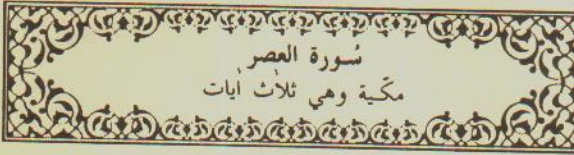 سُورة العصر
مكّية وهي ثلاث اٰيات